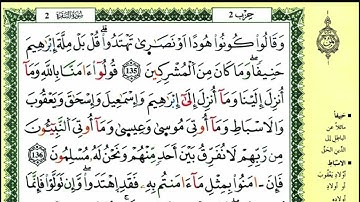 حزب 2
سورة البقرة 2
وَقَالُوا۟ كُونُوا۟ هُودًا اَوْ نَصَٰر۪ىٰ تَهْتَدُوا۟ قُلْ بَلْ مِلَّةَ إِبْرَٰهِيمَ
حَنِيفًا وَمَا كَانَ مِنَ اَ۬لْمُشْرِكِينَ 135 قُولُوٓا۟ ءَامَنَّا بِاللَّهِ وَمَآ
أُنزِلَ إِلَيْنَا وَمَآ أُنزِلَ إِلَىٰٓ إِبْرَٰهِيمَ وَإِسْمَٰعِيلَ وَإِسْحَٰقَ وَيَعْقُوبَ
وَالَاسْبَاطِ وَمَآ أُوتِيَ مُوسَىٰ وَعِيسَىٰ وَمَآ أُوتِيَ اَ۬لنَّبِيٓـُٔونَ
مِن رَّبِّهِمْ لَا نُفَرِّقُ بَيْنَ أَحَدٍ مِّنْهُمْ وَنَحْنُ لَهُۥ مُسْلِمُونَ 136
فَإِنَ اٰمَنُوا۟ بِمِثْلِ مَآ ءَامَنتُم بِهِۦ فَقَدِ اِ۪هْتَدَوا۟ وَّإِن تَوَلَّوْا۟ فَإِنَّمَا
حنيفا
مائلا عن
الباطل إلى
الدين الحق
الاسباط
أولاد يعقوب
أو أولاد
أولاده